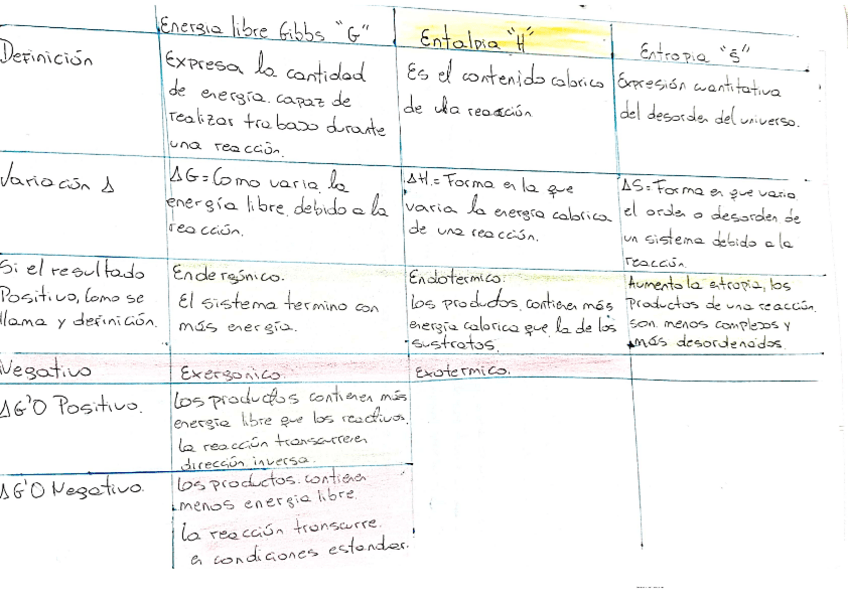 Energia libre Gibbs "G"
Entalpia "H"
Entropia "S"
Definición
Expresa la cantidad
de energía capaz de
realizar trabajo durante
una reacción.
Es el contenido calorico
de una reacción
Expresión cuantitativa
del desorden del universo.
Variación Δ
ΔG= Como varia la
energía libre debido a la
reacción.
ΔH.= Forma en la que
varia la energia calorica
de una reacción.
ΔS= Forma en que varia
el orden o desorden de
un sistema debido a la
reacción
Si el resultado
Positivo, como se
llama y definición.
Endergónico.
El sistema termino con
más energía.
Endotermico:
los productos contienen más
energia calorica que la de los
sustratos.
Aumenta la entropia, los
productos de una reacción
son menos complejos y
más desordenados.
Negativo
Exergonico.
Exotermico.
ΔG'O Positivo.
los productos contienen más
energía libre que los reactivos.
la reacción transcurre en
dirección inversa.
ΔG'O Negativo.
los productos contienen
menos energia libre.
la reacción transcurre
en condiciones estandar.